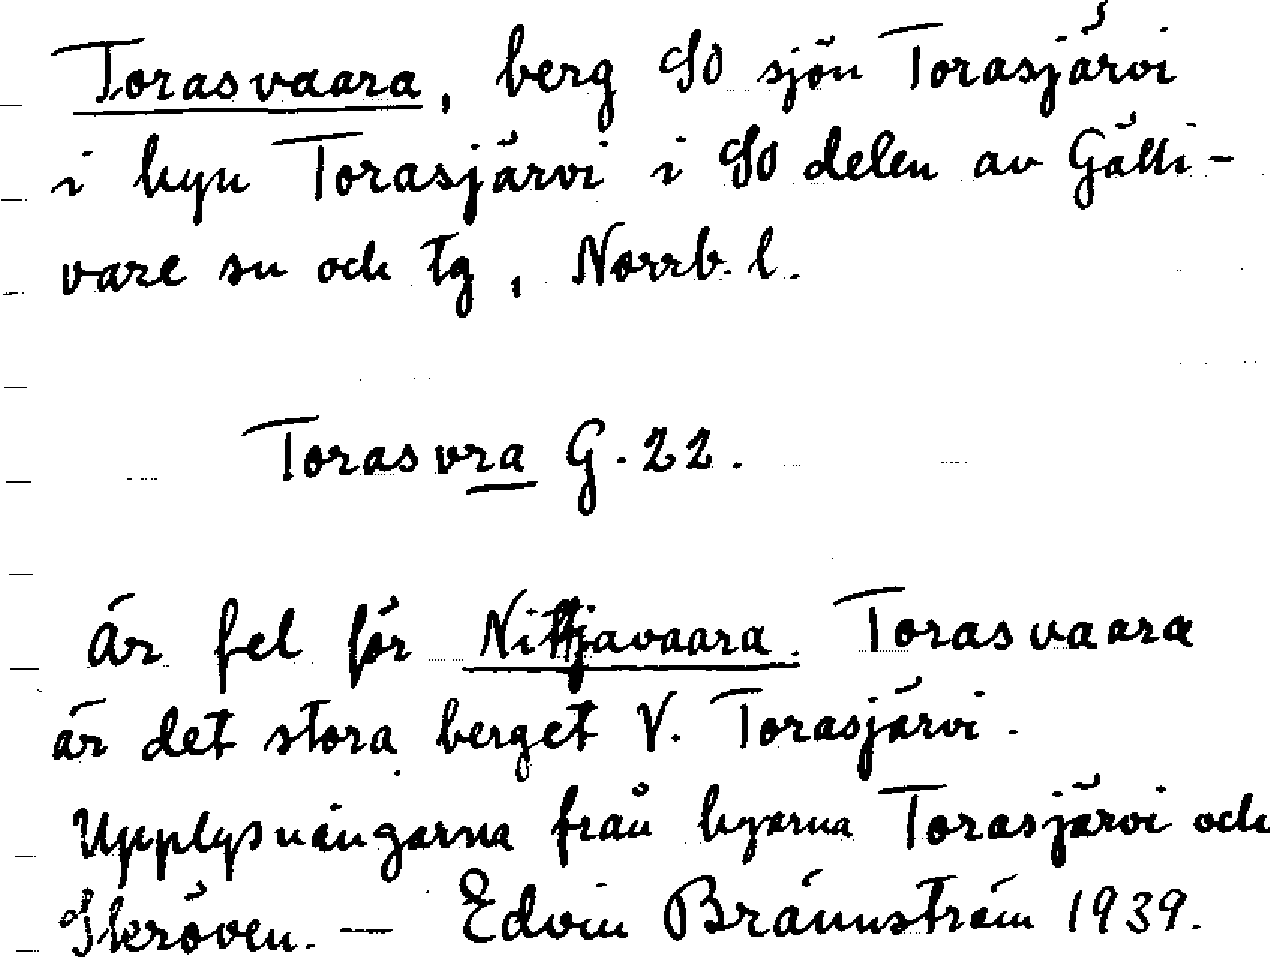 Torasvaara, berg SO sjön Torasjärvi
i byn Torasjärvi i SO delen av Gälli-
vare sn och tg, Norrb. l.
Torasvra G. 22.
Är fel för Nittjavaara. Torasvaara
är det stora berget V. Torasjärvi.
Upplysningarna från byarna Torasjärvi och
Skröven. — Edvin Brännström 1939.